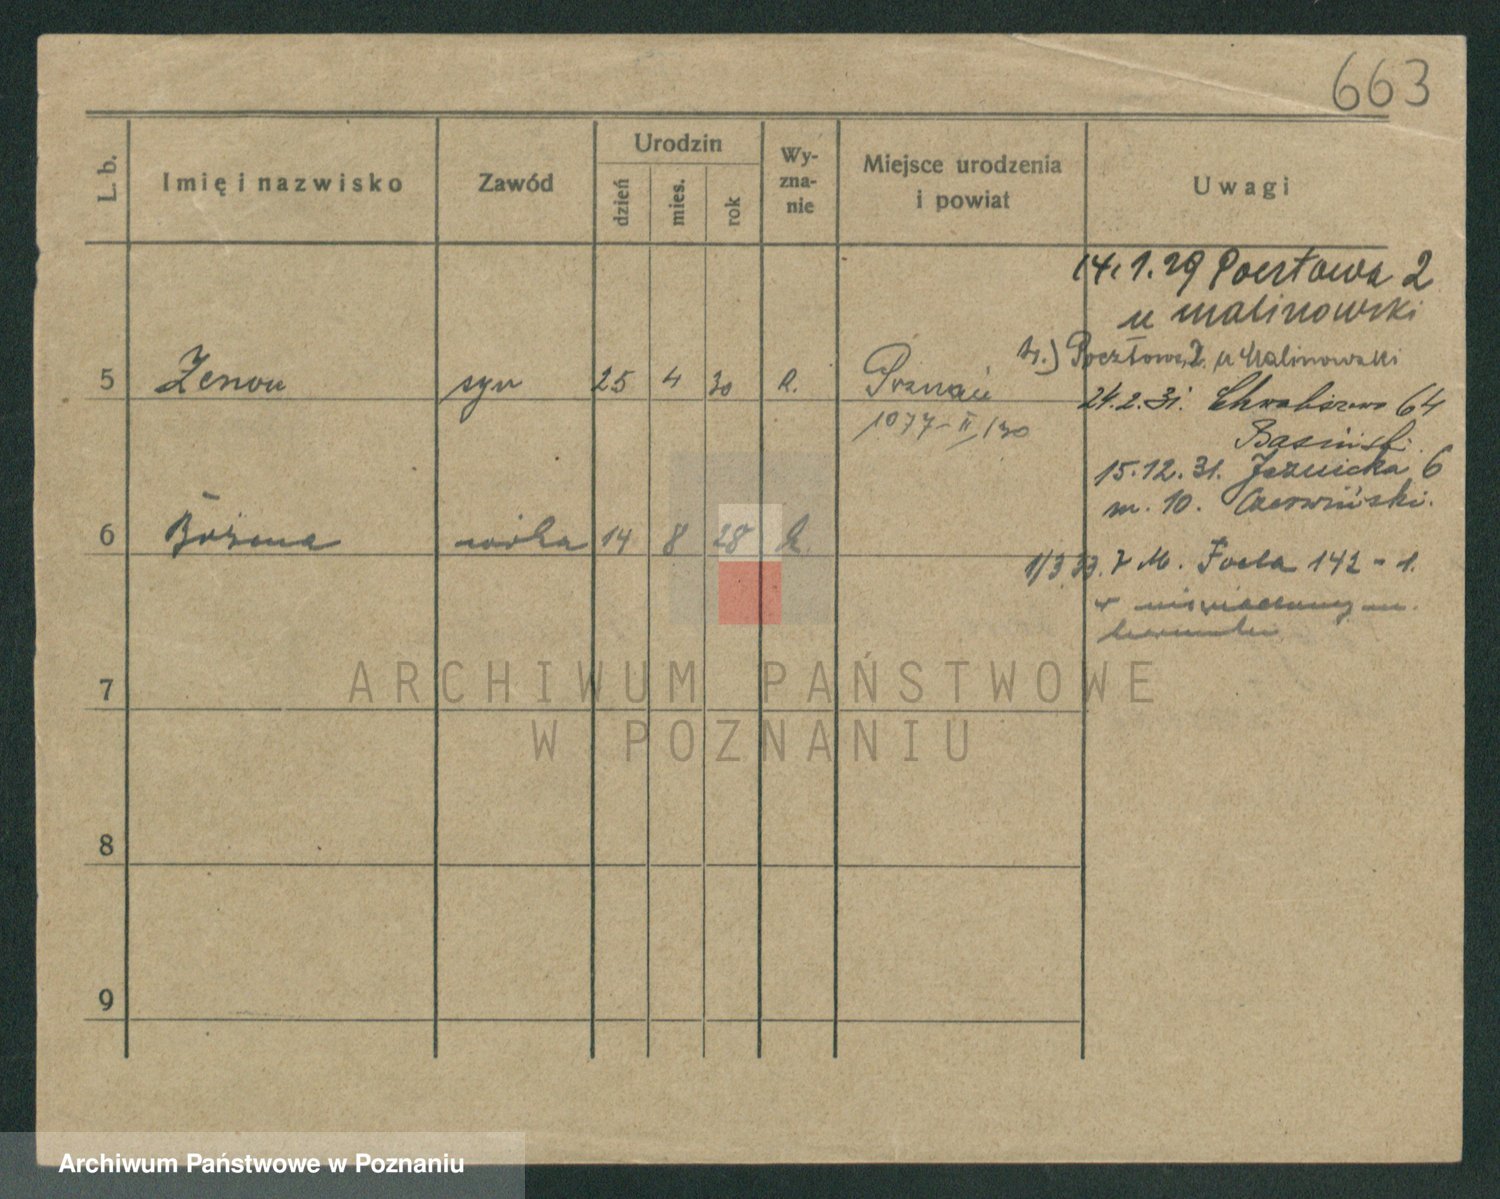 663
L. b.
Imię i nazwisko
Zawód
Urodzin
dzień
mies.
rok
Wy-
zna-
nie
Miejsce urodzenia
i powiat
Uwagi
14.1.29 Pocztowa 2
u Malinowski
Pocztowa 2 u Malinowski
5 Zenon syn 25 4 30 R. Poznań
1077-II/30
24.2.31. Chwaliszewo 64
15.12.31. Jezuicka 6
m. 10. Czerwiński.
6 Bożena córka 14 8 28
1/3 33. 7 M. Focha 142 - 1.
7
8
9
ARCHIWUM PAŃSTWOWE
W POZNANIU
Archiwum Państwowe w Poznaniu